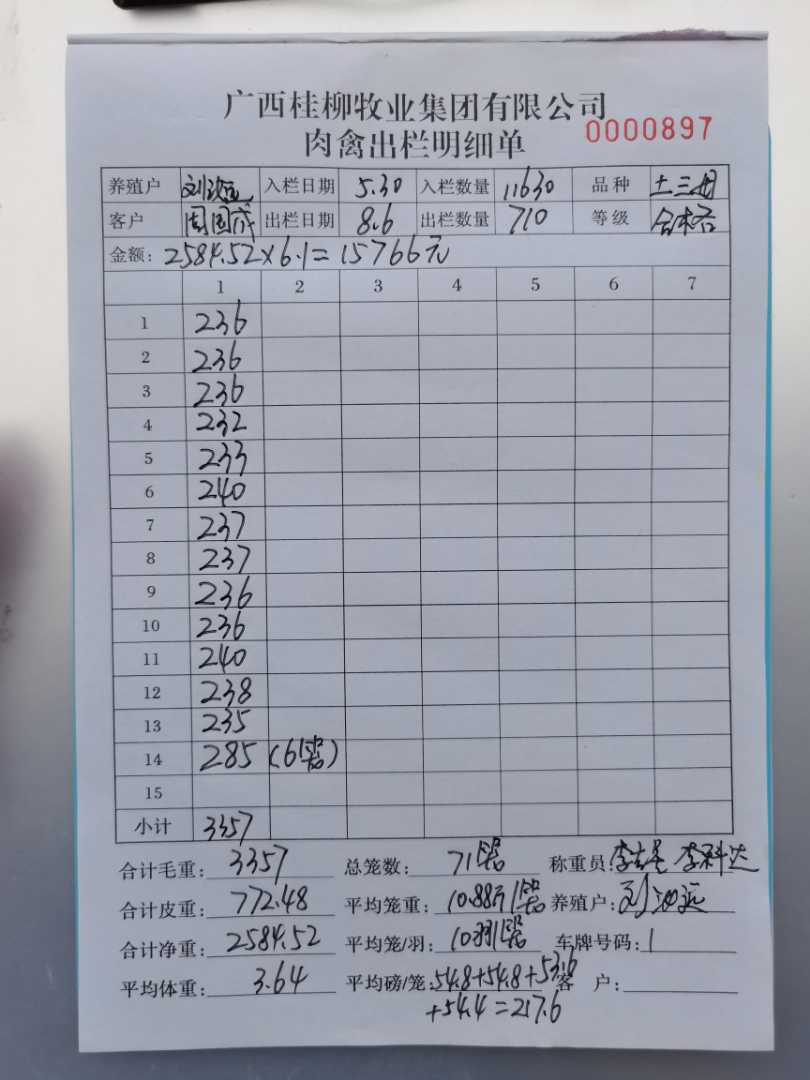 广西桂柳牧业集团有限公司
肉禽出栏明细单 0000897
养殖户 刘 入栏日期 5.30 入栏数量 11630 品种 土三母
客户 周国成 出栏日期 8.6 出栏数量 710 等级 合格
金额: 2584.52×6.1=15766元
1 2 3 4 5 6 7
1 236
2 236
3 236
4 232
5 233
6 240
7 237
8 237
9 236
10 236
11 240
12 238
13 235
14 285 (6笼)
15
小计 3357
合计毛重: 3357 总笼数: 71笼 称重员: 李科达
合计皮重: 772.48 平均笼重: 10.88斤/笼 养殖户: 刘
合计净重: 2584.52 平均笼/羽: 10羽/笼 车牌号码:
平均体重: 3.64 平均磅/笼: 54.8+54.8+53.6 客 户:
+54.4=217.6